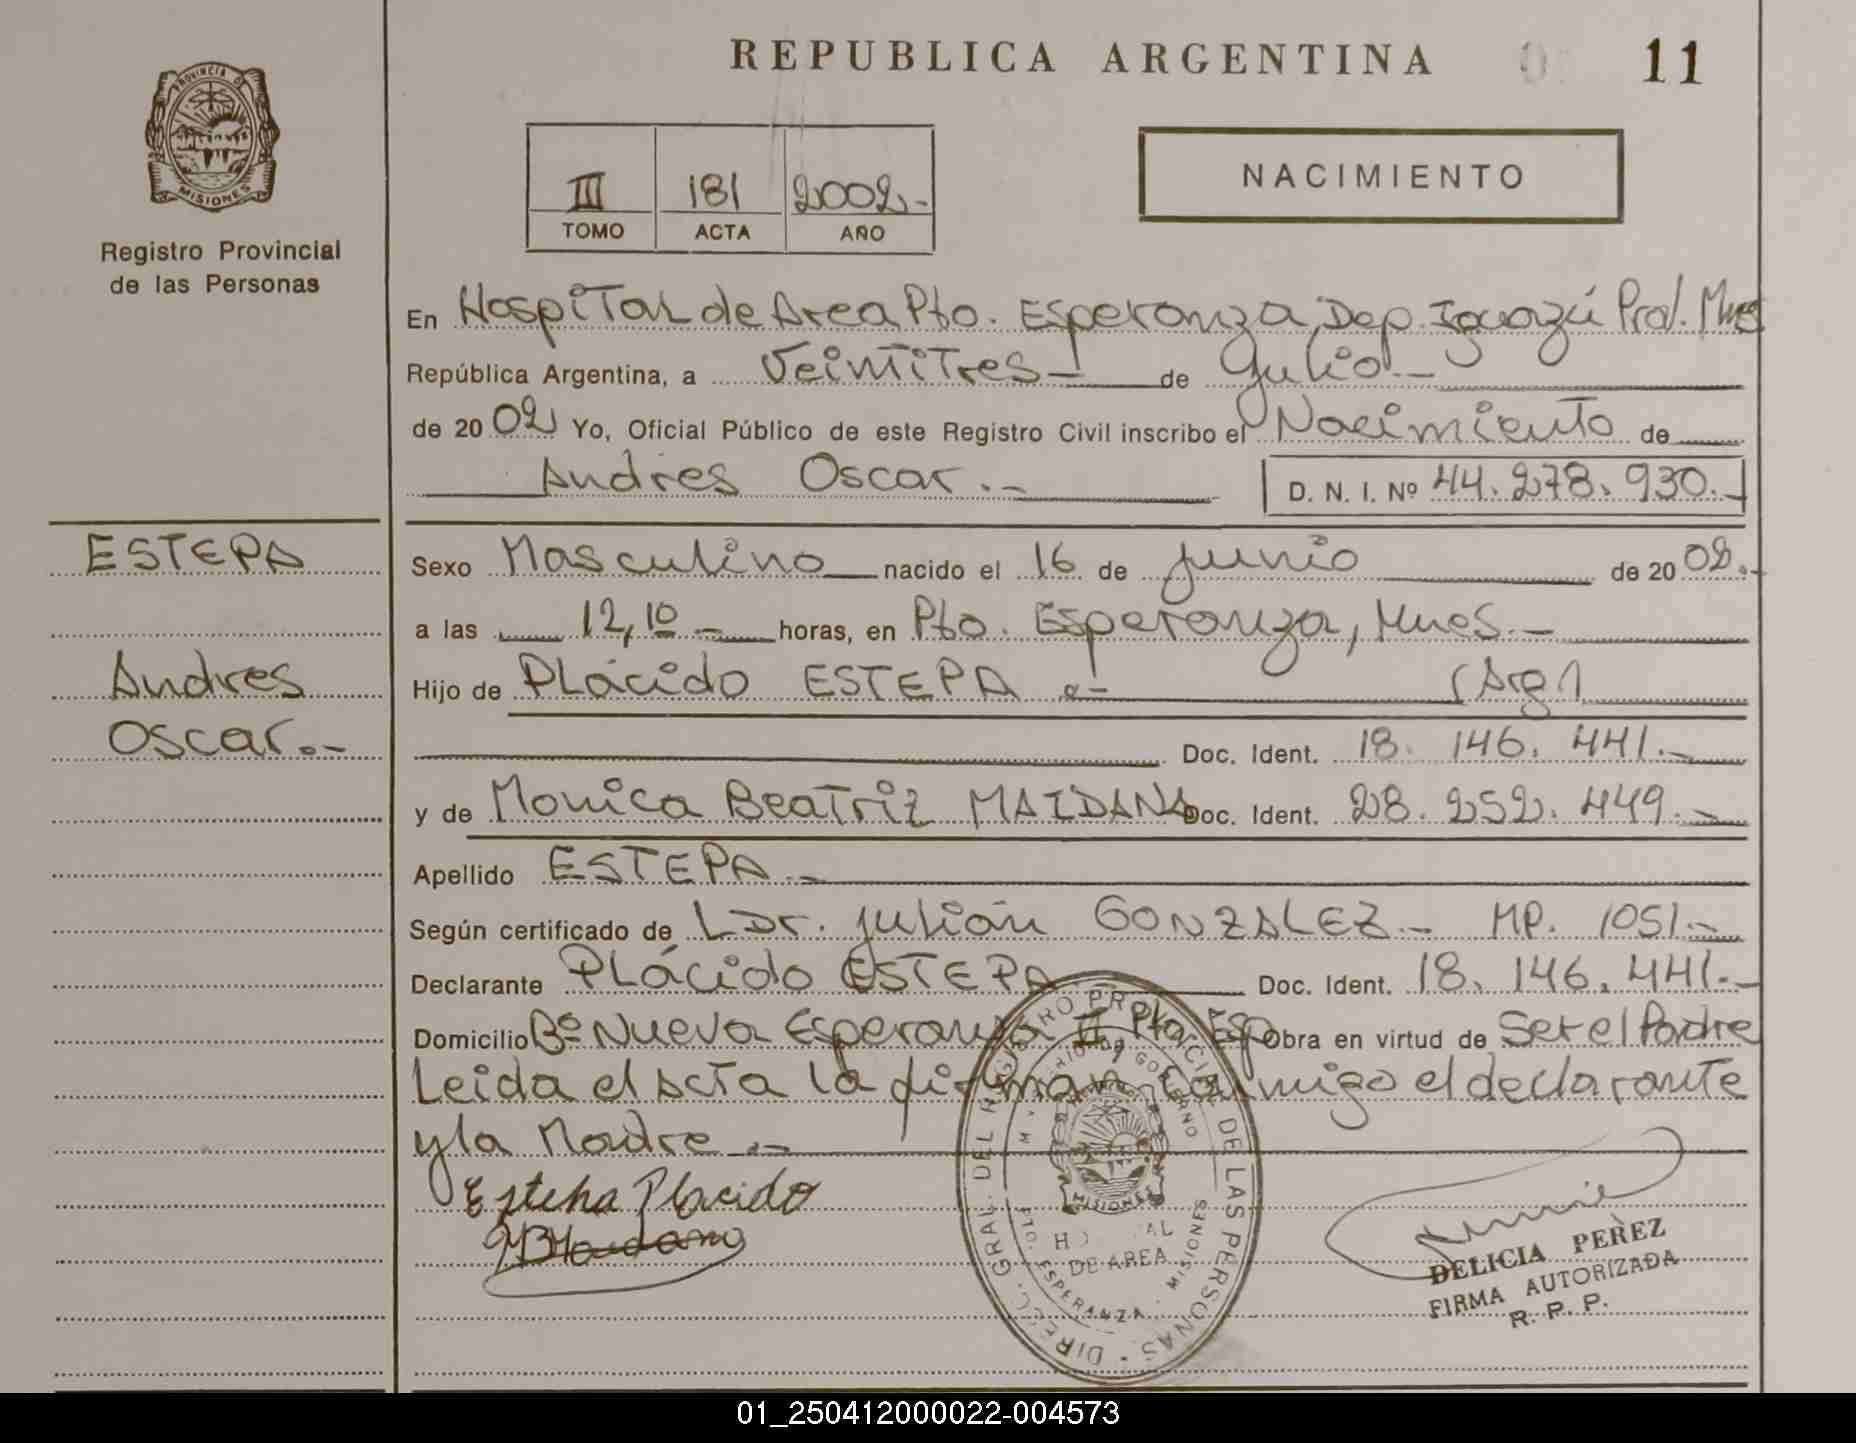 REPUBLICA ARGENTINA 11
PROVINCIA DE
MISIONES
Registro Provincial
de las Personas
III 181 2002.-
TOMO ACTA AÑO
NACIMIENTO
En Hospital de Area Pto. Esperanza, Dep. Iguazú Prov. Mnes
República Argentina, a Veintitres.- de Julio.-
de 20 02 Yo, Oficial Público de este Registro Civil inscribo el Nacimiento de
Andres Oscar.- D. N. I. Nº 44.278.930.-
ESTEPA
Andres
Oscar.-
Sexo Masculino nacido el 16 de Junio de 20 02.-
a las 12,10 - horas, en Pto. Esperanza, Mnes.-
Hijo de Plácido ESTEPA .- (Arg)
Doc. Ident. 18.146.441.-
y de Monica Beatriz MAIDANA Doc. Ident. 28.252.449.-
Apellido ESTEPA.-
Según certificado de L Dr. Julián GONZALEZ.- MP. 1051.-
Declarante Plácido ESTEPA Doc. Ident. 18.146.441.-
Domicilio Bº Nueva Esperanza II Pto Esp Obra en virtud de Ser el Padre
Leida el acta la firman conmigo el declarante
y la Madre.-
Estepa Placido
MBMaidana
DIRECC. GRAL. DEL REGISTRO PROVINCIAL DE LAS PERSONAS
MINISTERIO DE GOBIERNO
MISIONES
DE AREA
PTO. ESPERANZA - MISIONES
DELICIA PEREZ
FIRMA AUTORIZADA
R. P. P.
01_250412000022-004573